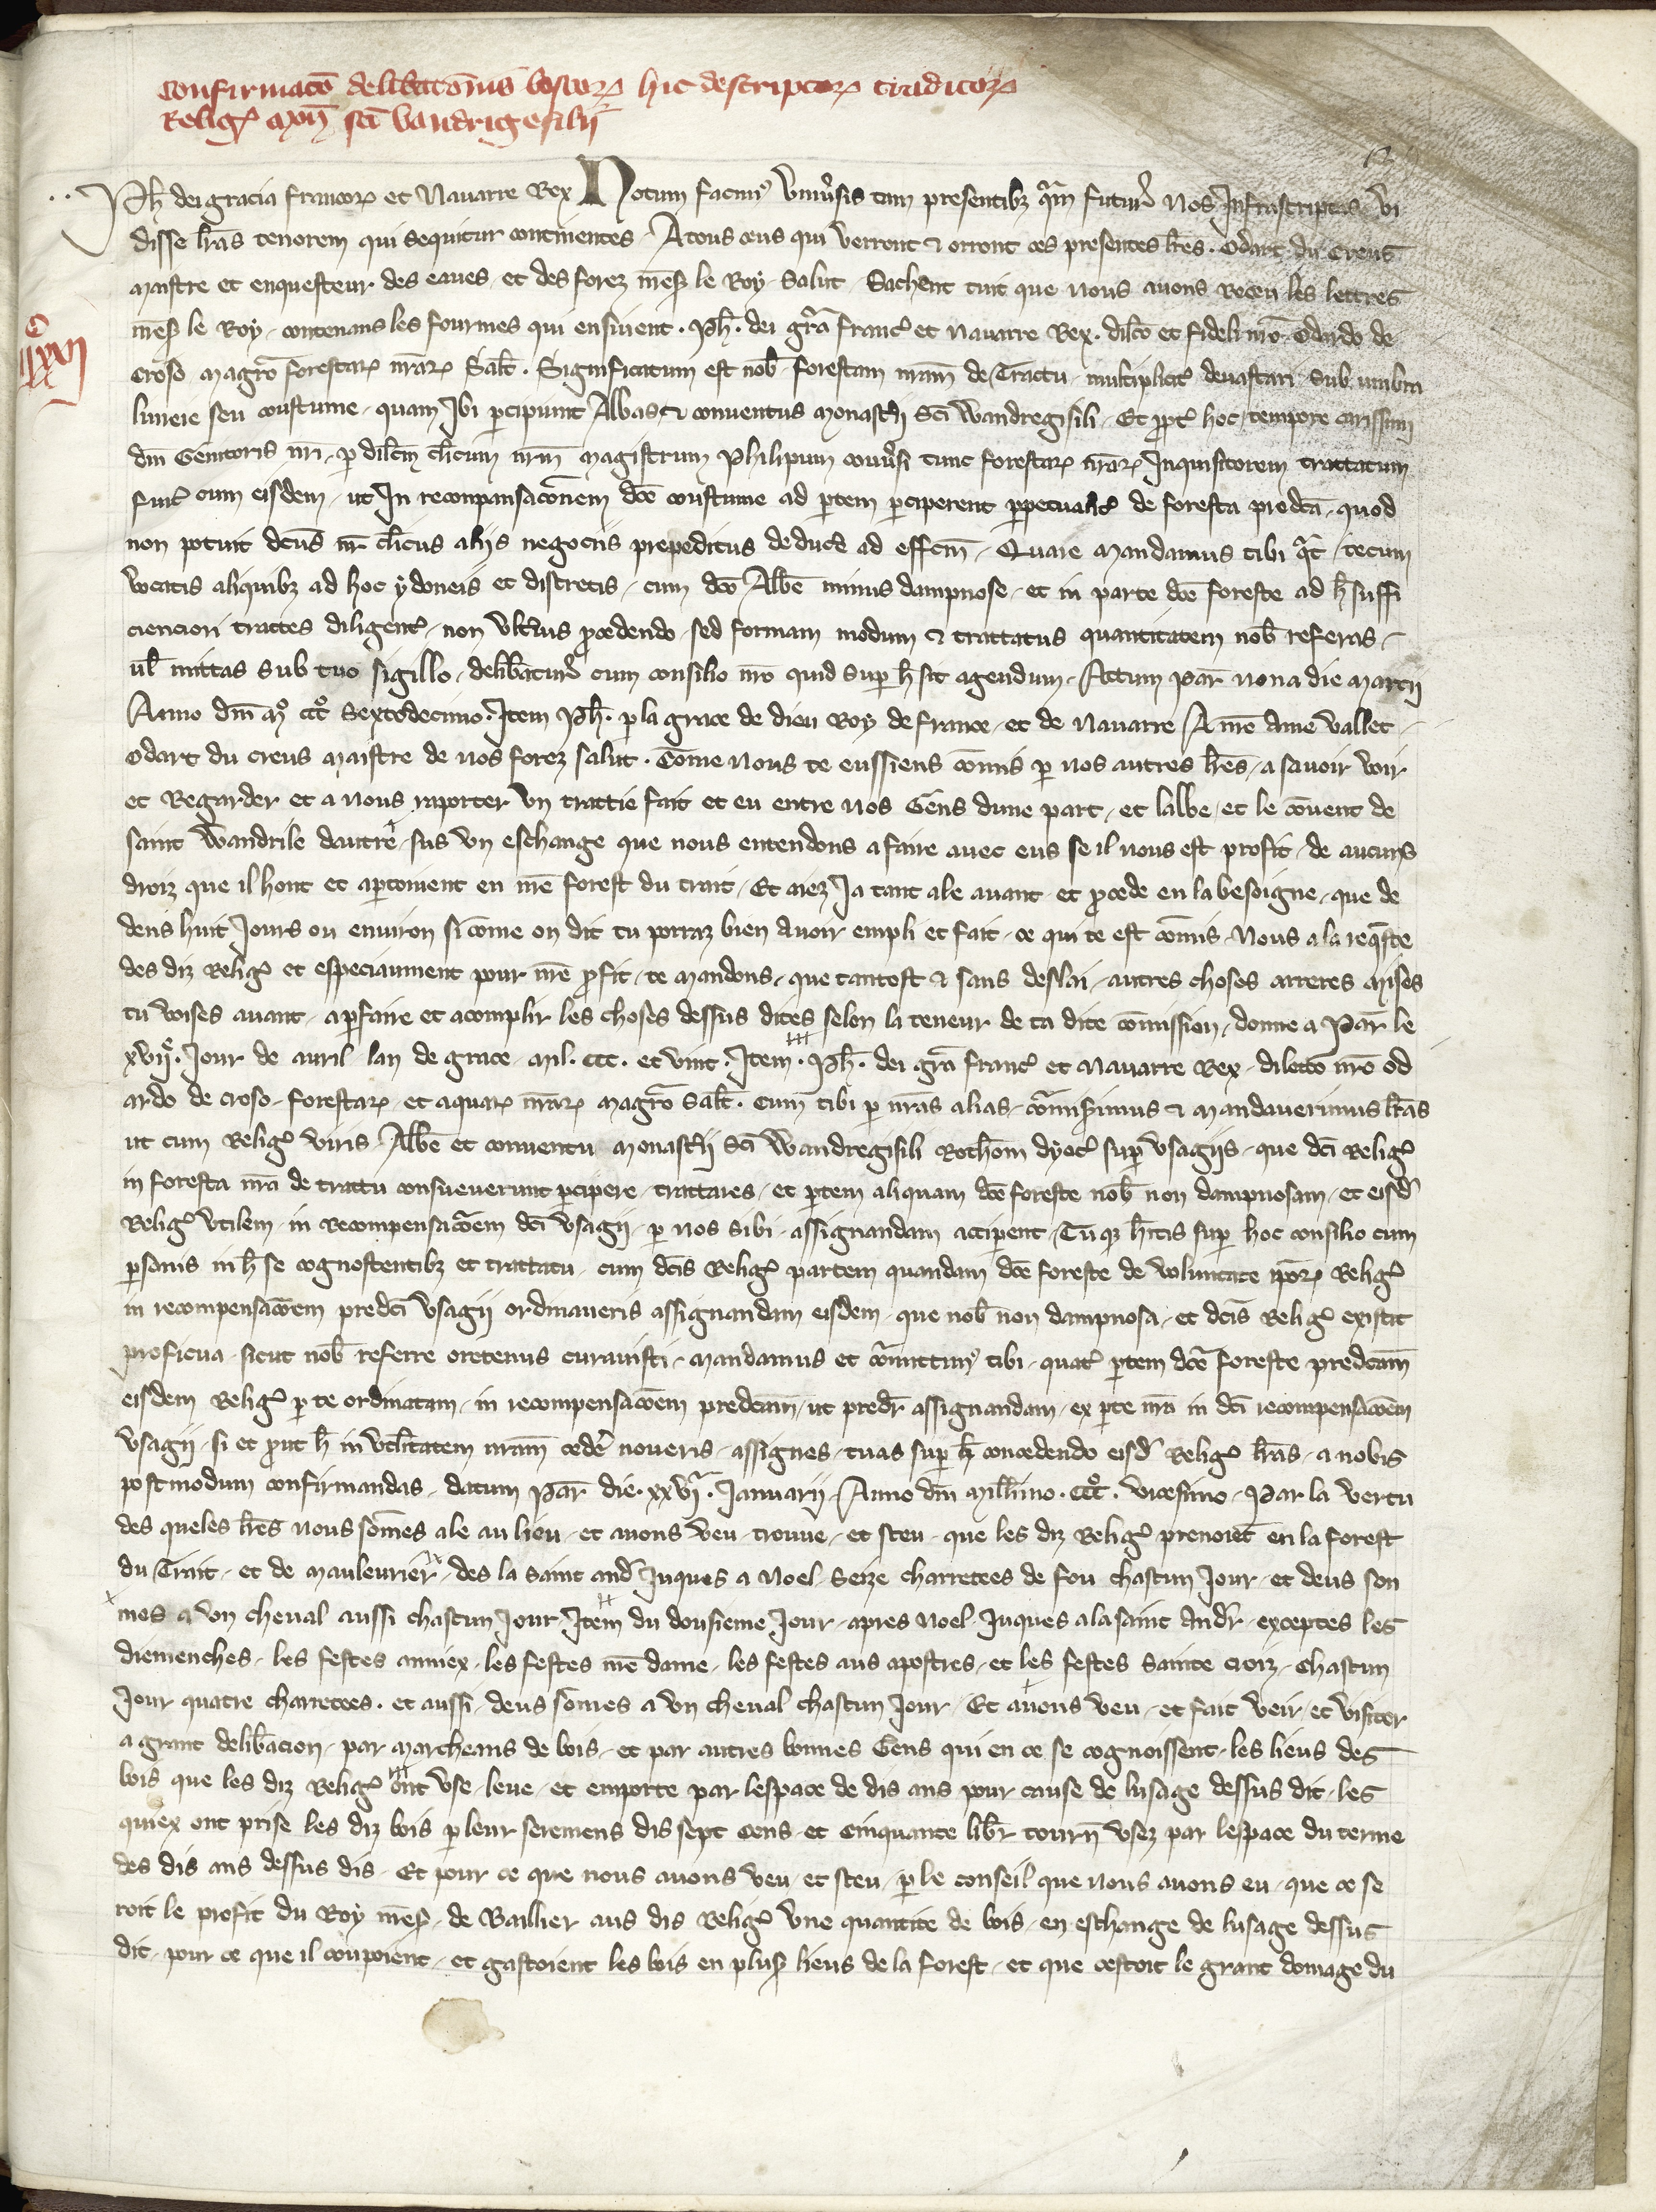 Confirmacō deliberacōīnis boscorꝝ hic descriptorꝝ traditorꝝ
Religꝰ ... sc̄i Vandrigesilii
Ph̄. dei gracia francorꝝ et Nauarre Rex Notum facimꝰ Vniuersis tam presentibꝫ qͣm futurꝭ Nos Infrascriptas vi
disse lr̄as tenorem qui sequitur continentes. A tous ceus qui verront & orront ces presentes lr̄es. Odart du Creus
maistre et enquesteur des eaues et des forez mes̄ le Roy Salut. Sachent tuit que nous auons Receu les lettres
mes̄ le Roy contenans les fourmes qui ensiuent. Ph̄. dei grā francꝭ et Nauarre Rex. dilc̄o et fideli nrō Odardo de
Croso magrō forestarꝝ nr̄arꝝ Salt̄. Significatum est nob̄ forestam nram̄ de Tractu multiplicitꝭ deuastari sub umbra
liureie seu coustume quam Ibi ꝑcipiunt Abbas & conuentus Monastꝭii Sc̄i Wandregisili. Et ꝓptꝭ hoc tempore carissimi
dn̄i Genitoris nr̄i ꝑ dilc̄m cl̄icum nrm̄ magistrum Philipum conuꝭsi tunc forestarꝝ nr̄arꝝ Inquisitorem trattatum
fuitꝭ cum eisdem ut In reconpansacōnem dc̄e coustume ad ꝑtem ꝑciperent ꝑpetualitꝭ de foresta predc̄a quod
non potuit dc̄us nr̄ cl̄icus aliis negociis prepeditus deduce ad effc̄m. Quare mandamus tibi qͣt̄ tecum
vocatis aliquibꝫ ad hoc ydoneis et discretis cum dc̄o Abb̄e minus dampnose et in parte dc̄e foreste ad h̄ suffi
cienciori trattes diligentꝭ non vltꝭius ꝓcedendo sed formam modum & trattatus quantitatem nob̄ referas
ul̄ mittas sub tuo sigillo delib̄aturꝭ cum consilio nrō quid suꝑ h̄ sit agendum. Actum Par̄ nona die marcij
Anno dn̄i mͦ cccͦ Sextodecimo. Item Ph̄. ꝑ la grace de dieu Roy de france et de Nauarre A nr̄e ame vallet
Odart du creus maistre de nos forez salut. Com̄e nous te eussiens com̄is ꝑ nos autres lr̄es a sauoir voir
et Regarder et a nous raporter vn trattie fait et eu entre nos Gens dune part et labbe et le couent de
saint Wandrile dautrꝭ sus vn eschange que nous entendons a faire auec eus se il nous est profit de aucuns
droiz que il hont et aꝑtonient en nr̄e forest du trait. Et aiez Ja tant ale auant et ꝓcede en la besoigne que de
dens huit Jours ou enuiron si com̄e on dit tu porraz bien auoir empli et fait ce qui te est com̄is. Nous a la req̄ste
des diz Religꝭ et especiaument pour nr̄e ꝓfit te mandons que tantost & sans deslai autres choses arreres mises
tu voises auant a ꝑfaire et acomplir les choses dessus dites selon la teneur de ta dite com̄ission. donne a Par̄ le
xvijͤ. Jour de auril lan de grace mil. ccc. et vint. Item. Ph̄. dei grā francꝭ et Nauarre Rex dilecto nrō Od
ardo de croso forestarꝝ et aquarꝝ nr̄arꝝ magrō Salt̄. Cum tibi ꝑ nr̄as alias com̄isimus & mandauerimus lr̄as
ut cum Religꝭ viris Abb̄e et conuentu monastꝭii Sc̄i Wandregisili Rothom̄ dyocꝭ suꝑ vsagiis que dc̄i Religꝭ
in foresta nr̄a de trattu consueuerunt ꝑcipere trattares et ꝑtem aliquam dc̄e foreste nob̄ non dampnosam et eisdꝭ
Religꝭ vtilem in Recompensacōem dc̄i vsagij ꝑ nos sibi assignandam acciperent. Tuqꝫ h̄itis suꝑ hoc consilio cum
ꝑsonis in h̄ se cognoscentibꝫ et trattatu cum dc̄is Religꝭ partem quandam dc̄e foreste de voluntate ipōrꝝ Religꝭ
in recompensacōem predc̄i vsagij ordinaueris assignandam eisdem que nob̄ non dampnosa et dc̄is Religꝭ existit
proficua sicut nob̄ referre oretenus curauisti. Mandamus et com̄ittimꝰ tibi quatꝭ ꝑtem dc̄e foreste predc̄am
eisdem Religꝭ ꝑ te ordinatam in recompensacōem predc̄am ut predr̄ assignandam ex ꝑte nr̄a in dc̄i recompensacōem
vsagij si et ꝓut h̄ in vtil̄itatem nram̄ cedꝭe noueris assignes tuas suꝑ h̄ concedendo eisdꝭ Religꝭ lr̄as a nobis
postmodum confirmandas. datum Par̄ die xxvjͣ. Januarij Anno dn̄i mill̄imo. cccͦ. vicesimo. Par la vertu
des queles lr̄es nous som̄es ale au lieu et auons veu trouue et sceu que les diz Religꝭ prenoiēt en la forest
du Trait et de mauleurierꝭ des la saint andr̄ Juques a Noel Seize charretees de fou chascun Jour et deus som
mes a vn cheual aussi chascun Jour. Item du dousieme Jour apres Noel Juques a la saint Andr̄ exceptes les
diemenches les festes anniex les festes nr̄e dame les festes aus apostres et les festes Sainte croiz chascun
Jour quatre charretees et aussi deus som̄es a vn cheual chascun Jour. Et auons veu et fait veir et visiter
a grant delib̄acion par marcheans de bois et par autres bonnes Gens qui en ce se cognoissent les lieus des
bois que les diz Religꝭ ont vse leue et emporte par lespace de dis ans pour cause de lusage dessus dit les
quiex ont prise les diz bois ꝑ leur seremens dis sept cens et cinquante libr̄ tourn̄ vsez par lespace du terme
des dis ans dessus dis. Et pour ce que nous auons veu et sceu ꝑ le conseil que nous auons eu que ce se
roit le profit du Roy mes̄ de Baillier aus dis Religꝭ vne quantite de bois en eschange de lusage dessus
dit pour ce que il coupoient et gastoient les bois en plus̄ lieus de la forest et que cestoit le grant domage du